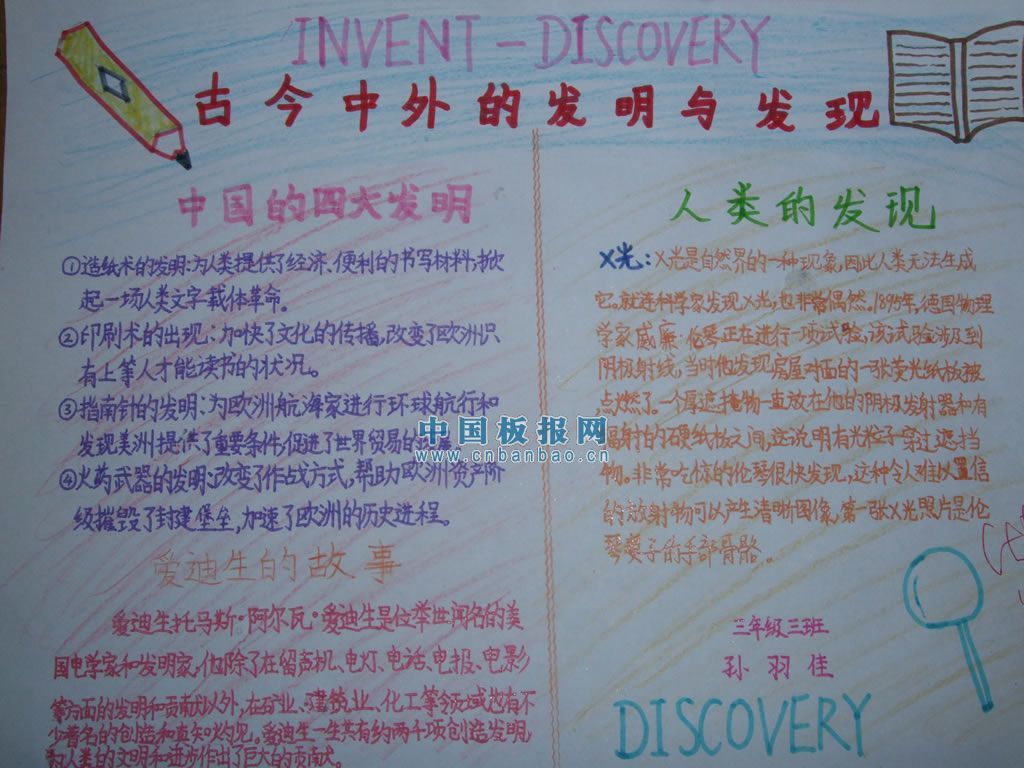 INVENT – DISCOVERY
古今中外的发明与发现
中国的四大发明
①造纸术的发明:为人类提供了经济、便利的书写材料,掀
起一场人类文字载体革命。
②印刷术的出现:加快了文化的传播,改变了欧洲只
有上等人才能读书的状况。
③指南针的发明:为欧洲航海家进行环球航行和
发现美洲提供了重要条件,促进了世界贸易的发展
④火药武器的发明:改变了作战方式,帮助欧洲资产阶
级摧毁了封建堡垒,加速了欧洲的历史进程。
爱迪生的故事
爱迪生托马斯·阿尔瓦·爱迪生是位举世闻名的美
国电学家和发明家,他除了在留声机、电灯、电话、电报、电影
等方面的发明和贡献以外,在矿业、建筑业、化工等领域也有不
少著名的创造和真知灼见。爱迪生一生共有约两千项创造发明,
为人类的文明和进步作出了巨大的贡献。
人类的发现
X光:X光是自然界的一种现象,因此人类无法生成
它。就连科学家发现X光,也非常偶然。1895年,德国物理
学家威廉·伦琴正在进行一项试验,该试验涉及到
阴极射线,当时他发现房屋对面的一张荧光纸板被
点燃了。一个厚遮掩物一直放在他的阴极发射器和有
辐射的硬纸板之间,这说明有光粒子穿过遮挡
物。非常吃惊的伦琴很快发现,这种令人难以置信
的放射物可以产生清晰图像,第一张X光照片是伦
琴妻子的手部骨骼。
三年级三班
孙羽佳
DISCOVERY
中国板报网
www.cnbanbao.cn